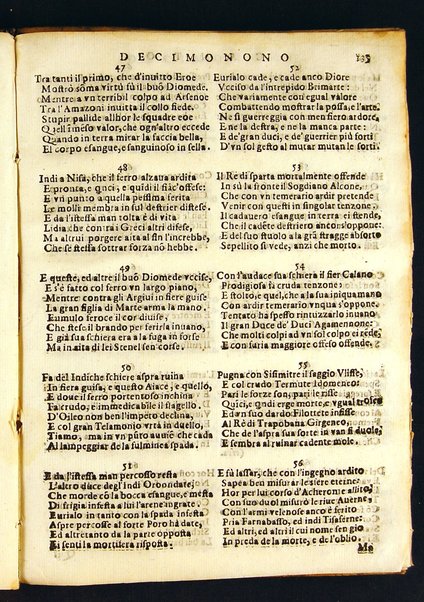 DECIMONONO 135
47
Tra tanti il primo, che d'inuitto Eroe
Mostrò soma virtù fù il buõ Diomede.
Mentre a vn terribil colpo ad Arsenoe
Tra l'Amazoni inuitta il collo fiede.
Stupir pallide allhor le squadre eoe
Quell'imeso valor, che ogn'altro eccede
Quando in terra mirar la faccia bella,
El corpo esangue, e sanguinoso in sella.
48
Indi a Nisa, che il ferro alzaua ardita
E pronta, e quci, e quidi il fiãc'offese:
E vn punto a quella pessima ferita
Le molli membra in sul destrier distese.
E da l'istessa man tolta è di vita
Lidia che contra i Greci altri difese,
Ma altrui porgere aita al fin l'increbbe,
Che se stessa sottrar forza nõ hebbe.
49
E queste, ed altre il buõ Diomede vccise,
E s'è fatto col ferro vn largo piano,
Mentre contra gli Argiui in fiere guise
La gran figlia di Marte arma la mano.
Eumulo feroce il cor diuise,
Che stese il brando per ferirla inuano,
E già sua schiera era alla fuga in forse
Ma in aita di lei Stenel sen corse.
50
Fa dêl Indiche schiere aspra ruina
In fiera guisa, e questo Aiace, e quello,
E doue il ferro portentoso inchina
Fa crudo, e immedicabile il flagello.
D'Oileo non ben l'impero declina,
E col gran Telamonio vrta in duello,
Tiamo, ma in vn pũto auuẽ che cada
Al lampeggiar de la fulminea spada.
51
E da l'istessa man percosso resta
L'altro duce degl'Indi Orbondate;
Che morde cõ la bocca esangue, e mesta
Di frigia infesta a lui l'arene ingrate.
Eurialo in tanto con la spada infesta
Aspre percosse al forte Poro hà date,
Ed altretanto da la parte opposta
Ei sentì la mortifera risposta.
52
Eurialo cade, e cade anco Diore
Vcciso da l'intrepido Brimarte:
Che variamente con egual valore
Combattendo mostrar la possa, e l'arte.
Ne sì guerreggia con men fiero ardore,
E ne la destra, e ne la manca parte:
E de' duci, e de' gran guerrier più forti
D'vn sol gesto al mutar mutan le sorti.
53
Il Re di sparta mortalmente offende
In sù la fronte il Sogdiano Alcone,
Che con vn temerario ardir pretende
Venir con questi in singolar tenzone.
Il cadauero esangue in terra ei stende,
Che il cadẽte destriero ancor s'oppone:
Ed sul suo stuolo a la grã stragge absorto
Sepellito si vede, anzi che morto.
54
Con l'audace sua schiera il fier Calano
Prodigiosa fà cruda tenzone:
E stolto, e quel, che a la sua iniqua mano
Con ardir temerario vn qua s'oppone.
Tentato hà spesso rintuzzarlo inuano
Il gran Duce de' Duci Agamennone:
Che molti colpi ad vn sol colpo ei rende
E con furia maggiore offeso offende.
55
Pugna con Sisimitre il saggio Vlisse,
E col crudo Termute Idomeneo:
Pari le forze son, pari le risse
Quici, e quindi erge morte, e vgual trofeo
Ed vn suo dardo Filottete infisse
Al Rè di Trapobana Girgenco,
Che de l'aspra sua sorte in van si duole,
E sembra al ruinar cadente mole.
56
E fù lasser, che con l'ingegno ardito
Sapea ben misurar le sfere eterne:
Hor per lui corso d'Acheronte al lito,
Con suo duol misurò le riue Auerne.
Con l'armi velenose anco è ferito
Pria Farnabasso, ed indi Tisaferne:
Ed altri, ed altri ancor sen gio
In preda de la morte, e de l'oblio.
Ma